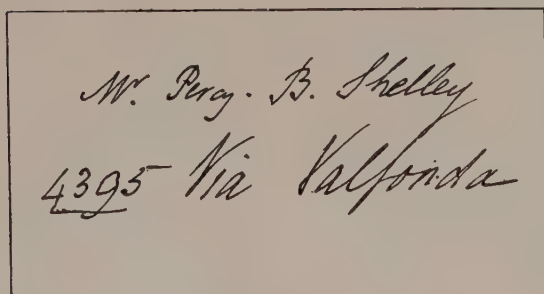 Mr. Percy. B. Shelley
4395 Via Valfonda